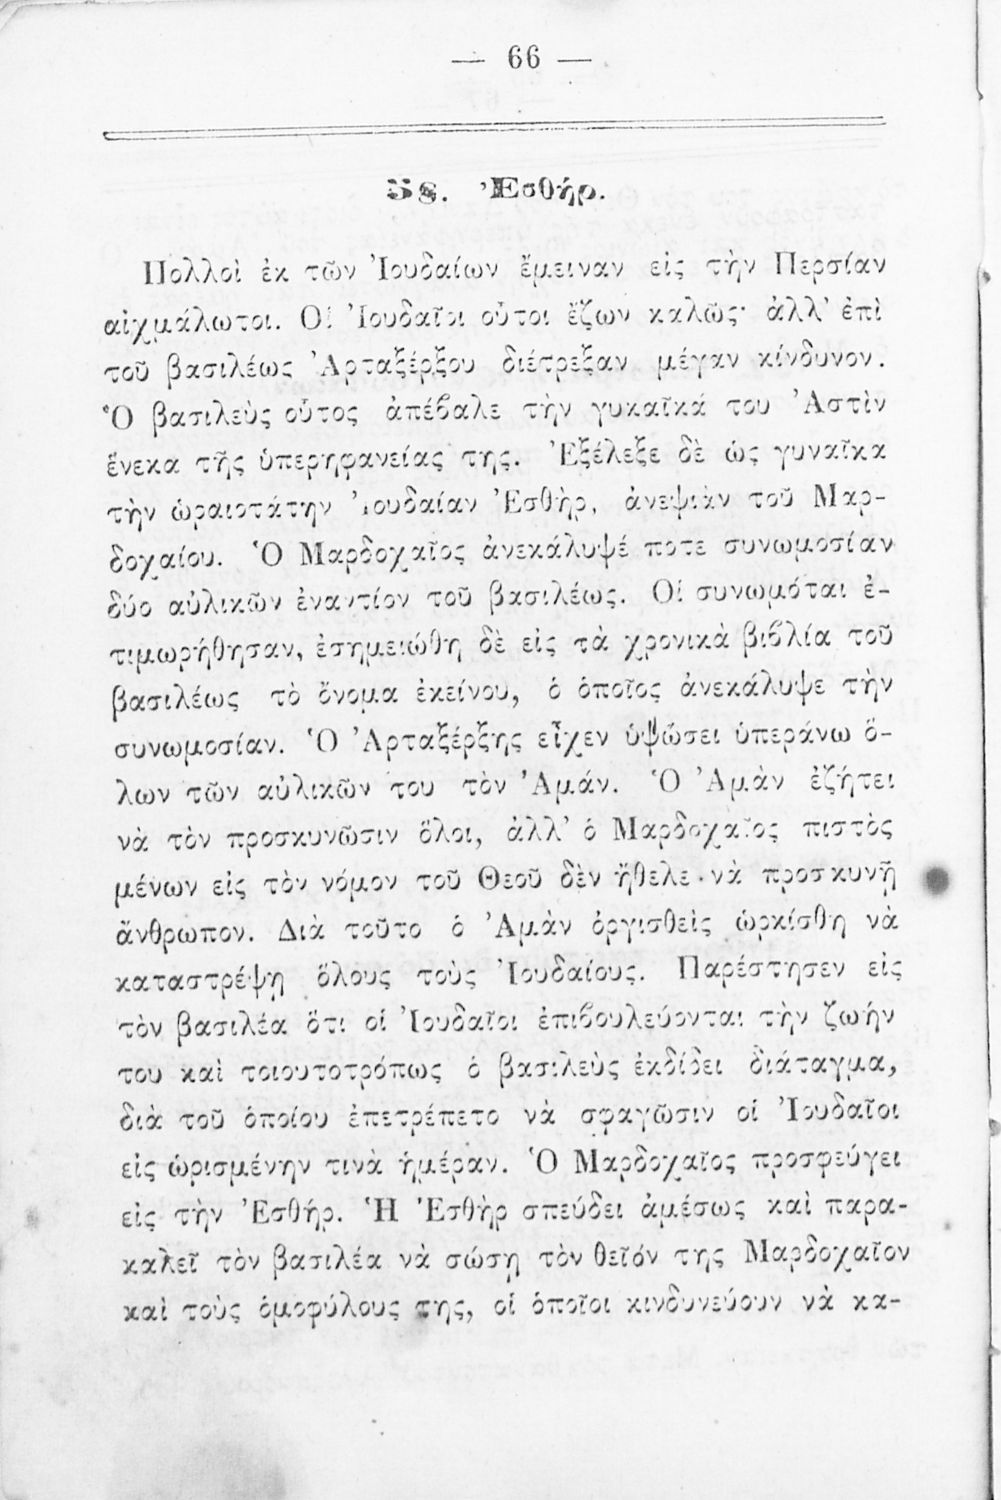 — 66 —
58. Ἐσθήρ.
Πολλοὶ ἐκ τῶν Ἰουδαίων ἔμειναν εἰς τὴν Περσίαν
αἰχμάλωτοι. Οἱ Ἰουδαῖοι οὗτοι ἔζων καλῶς· ἀλλ' ἐπὶ
τοῦ βασιλέως Ἀρταξέρξου διέτρεξαν μέγαν κίνδυνον.
Ὁ βασιλεὺς οὗτος ἀπέβαλε τὴν γυκαῖκά του Ἀστὶν
ἕνεκα τῆς ὑπερηφανείας της. Ἐξέλεξε δὲ ὡς γυναῖκα
τὴν ὡραιοτάτην Ἰουδαίαν Ἐσθὴρ, ἀνεψιὰν τοῦ Μαρ-
δοχαίου. Ὁ Μαρδοχαῖος ἀνεκάλυψέ ποτε συνωμοσίαν
δύο αὐλικῶν ἐναντίον τοῦ βασιλέως. Οἱ συνωμόται ἐ-
τιμωρήθησαν, ἐσημειώθη δὲ εἰς τὰ χρονικὰ βιβλία τοῦ
βασιλέως τὸ ὄνομα ἐκείνου, ὁ ὁποῖος ἀνεκάλυψε τὴν
συνωμοσίαν. Ὁ Ἀρταξέρξης εἶχεν ὑψώσει ὑπεράνω ὅ-
λων τῶν αὐλικῶν του τὸν Ἀμάν. Ὁ Ἀμὰν ἐζήτει
νὰ τὸν προσκυνῶσιν ὅλοι, ἀλλ' ὁ Μαρδοχαῖος πιστὸς
μένων εἰς τὸν νόμον τοῦ Θεοῦ δὲν ἤθελε νὰ προσκυνῇ
ἄνθρωπον. Διὰ τοῦτο ὁ Ἀμὰν ὀργισθεὶς ὡρκίσθη νὰ
καταστρέψῃ ὅλους τοὺς Ἰουδαίους. Παρέστησεν εἰς
τὸν βασιλέα ὅτι οἱ Ἰουδαῖοι ἐπιβουλεύονται τὴν ζωήν
του καὶ τοιουτοτρόπως ὁ βασιλεὺς ἐκδίδει διάταγμα,
διὰ τοῦ ὁποίου ἐπετρέπετο νὰ σφαγῶσιν οἱ Ἰουδαῖοι
εἰς ὡρισμένην τινὰ ἡμέραν. Ὁ Μαρδοχαῖος προσφεύγει
εἰς τὴν Ἐσθήρ. Ἡ Ἐσθὴρ σπεύδει ἀμέσως καὶ παρα-
καλεῖ τὸν βασιλέα νὰ σώσῃ τὸν θεῖόν της Μαρδοχαῖον
καὶ τοὺς ὁμοφύλους της, οἱ ὁποῖοι κινδυνεύουν νὰ κα-